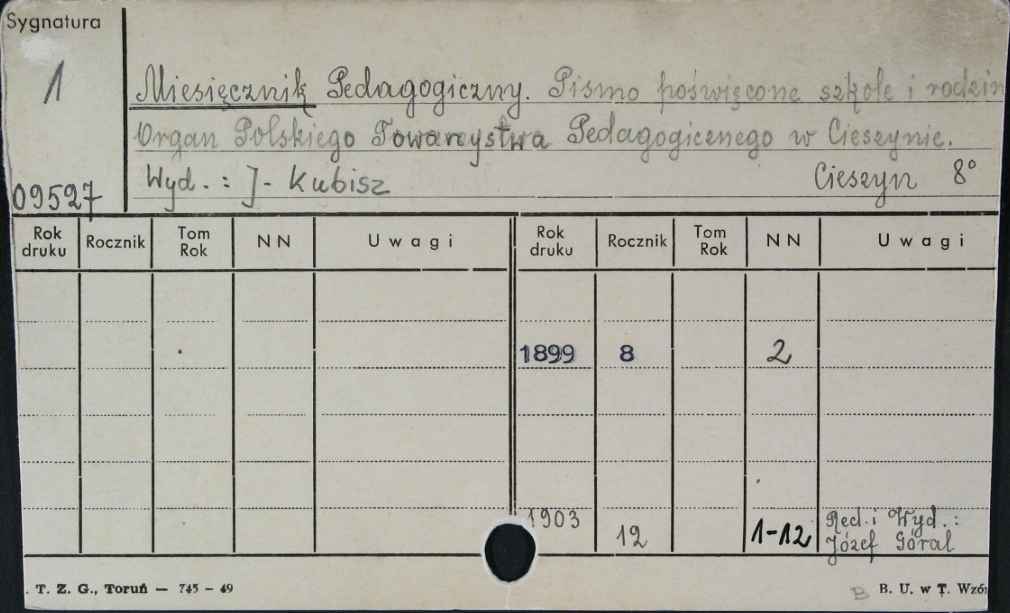 Sygnatura
1
Miesięcznik Pedagogiczny. Pismo poświęcone szkole i rodzin
Organ Polskiego Towarzystwa Pedagogicznego w Cieszynie.
Wyd.: J. Kubisz Cieszyn 8°
09527
Rok druku Rocznik Tom Rok NN Uwagi Rok druku Rocznik Tom Rok NN Uwagi
1899 8 2
1903 12 1-12 Red. i Wyd.:
Józef Góral
. T. Z. G., Toruń — 745 - 49 B B. U. w T. Wzó